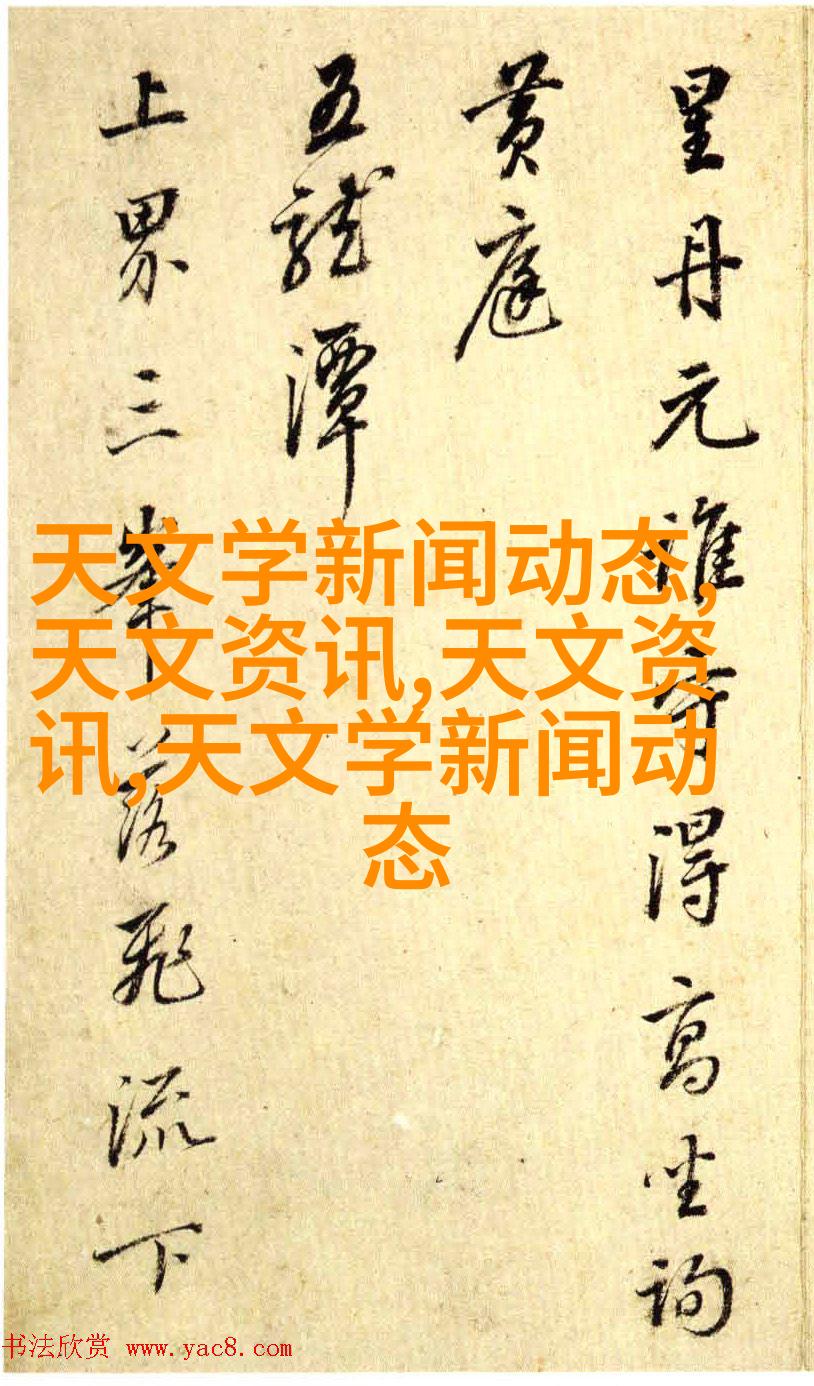 星丹元谁守得高坐询
黄庭
五龍潭
上界三峯落飛流下
天文学新闻动态,
天文资讯,天文资
讯,天文学新闻动
态
书法欣赏 www.yac8.com